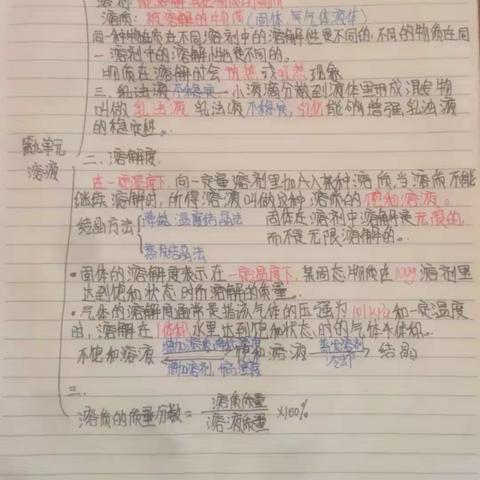 溶质: 被溶解的物质(固体、气体液体)
同一种物质在不同溶剂中的溶解性是不同的,不同的物质在同
一溶剂中的溶解性是不同的。
物质在溶解时会放热或吸热现象
三. 乳浊液 不稳定 小液滴分散到液体里形成混合物
叫做乳浊液 乳浊液不稳定, 乳化能够增强乳浊液
的稳定性。
第九单元
溶液
二. 溶解度.
在一定温度下,向一定量溶剂里加入某种溶质,当溶质不能
继续溶解时,所得溶液叫做这种溶质的饱和溶液。
结晶方法 降温结晶法 固体在溶剂中溶解是无限的,
而不是无限溶解的。
蒸发结晶法
•固体的溶解度表示在一定温度下,某固态物质在100g溶剂里
达到饱和状态时所溶解的质量。
•气体的溶解度通常是指该气体的压强为101kPa和一定温度
时,溶解在1体积水里达到饱和状态时的气体体积。
不饱和溶液 增加溶质,降低温度 饱和溶液 蒸发溶剂 结晶
增加溶剂,升高温度 冷却
三.
溶质的质量分数 = 溶质质量/溶液质量 ×100%